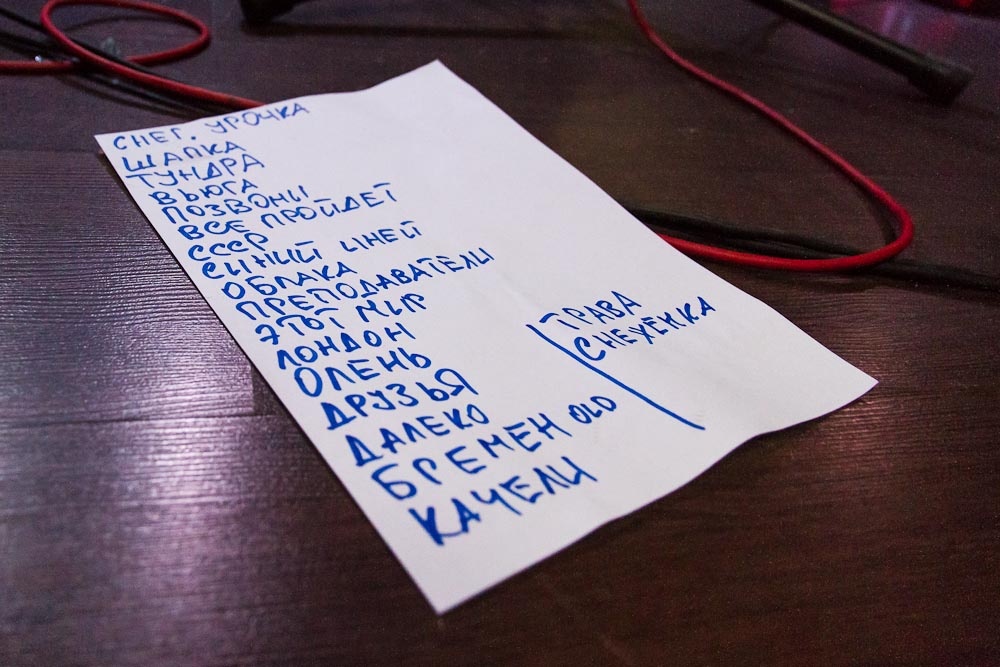 СНЕГ. УРОЧКА
ШАПКА
ТУНДРА
ВЬЮГА
ПОЗВОНИ
ВСЕ ПРОЙДЕТ
СССР
СИНИЙ ИНЕЙ
ОБЛАКА
ПРЕПОДАВАТЕЛИ
ЭТОТ МИР
ЛОНДОН
ОЛЕНЬ
ДРУЗЬЯ
ДАЛЕКО
БРЕМЕН OLD
КАЧЕЛИ
ТРАВА
СНЕЖЕНКА